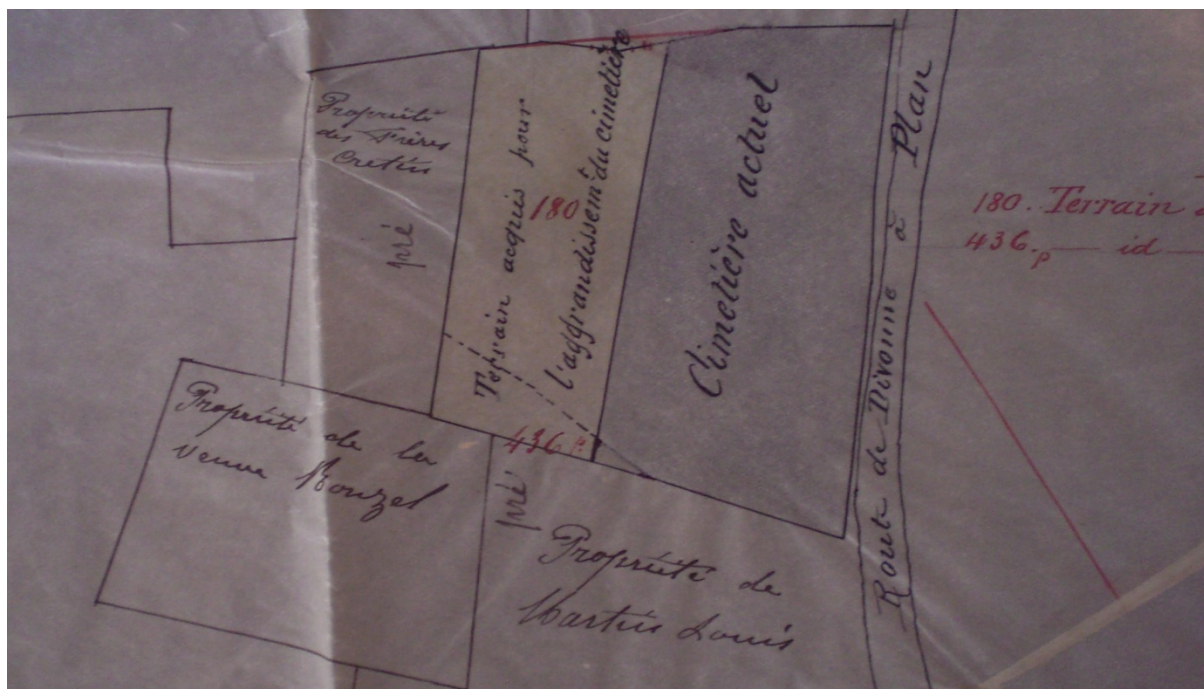 Propriété
des Frères
Cretin
pré
Terrain acquis pour
l'aggrandissemt du cimetière
180
436 P.
Cimetière actuel
Route de Divonne à Plan
180. Terrain
436.p — id —
Propriété de la
veuve Mouzel
pré
Propriété de
Martin Louis